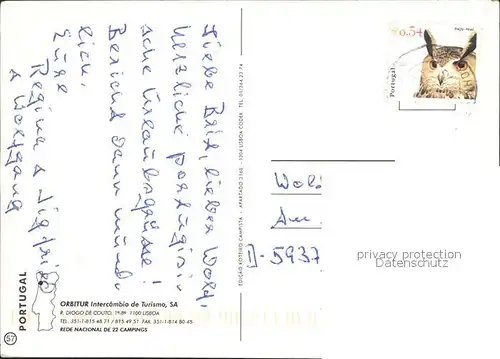 Liebe Brit, lieber Wolf,
herzliche portugiesi-
sche Urlaubsgrüsse!
Bericht dann münd-
lich.
Eure
Regina & Sigfried
& Wolfgang
PORTUGAL
57
ORBITUR Intercâmbio de Turismo, SA
R. DIOGO DO COUTO, 1º-8º 1100 LISBOA
TEL. 351-1-815 48 71 / 815 49 51 FAX. 351-1-814 80 45
REDE NACIONAL DE 22 CAMPINGS
EDIÇÃO ROTEIRO CAMPISTA - APARTADO 3168 - 1304 LISBOA CODEX - TEL. 01/364 23 74
0.54
Portugal
Wol
An
D-5937
privacy protection
Datenschutz